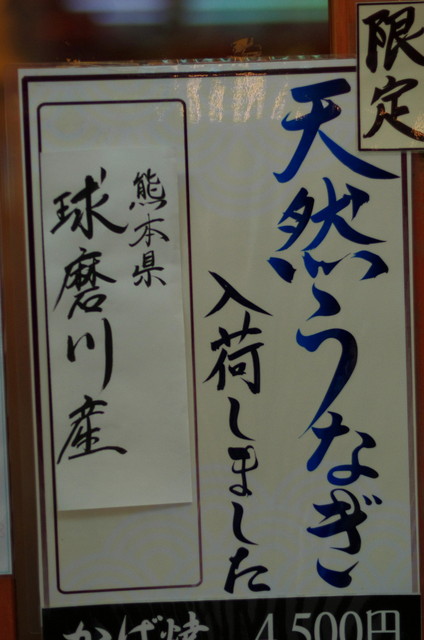 限定
天然うなぎ
入荷しました
熊本県
球磨川産
かば焼 4,500円